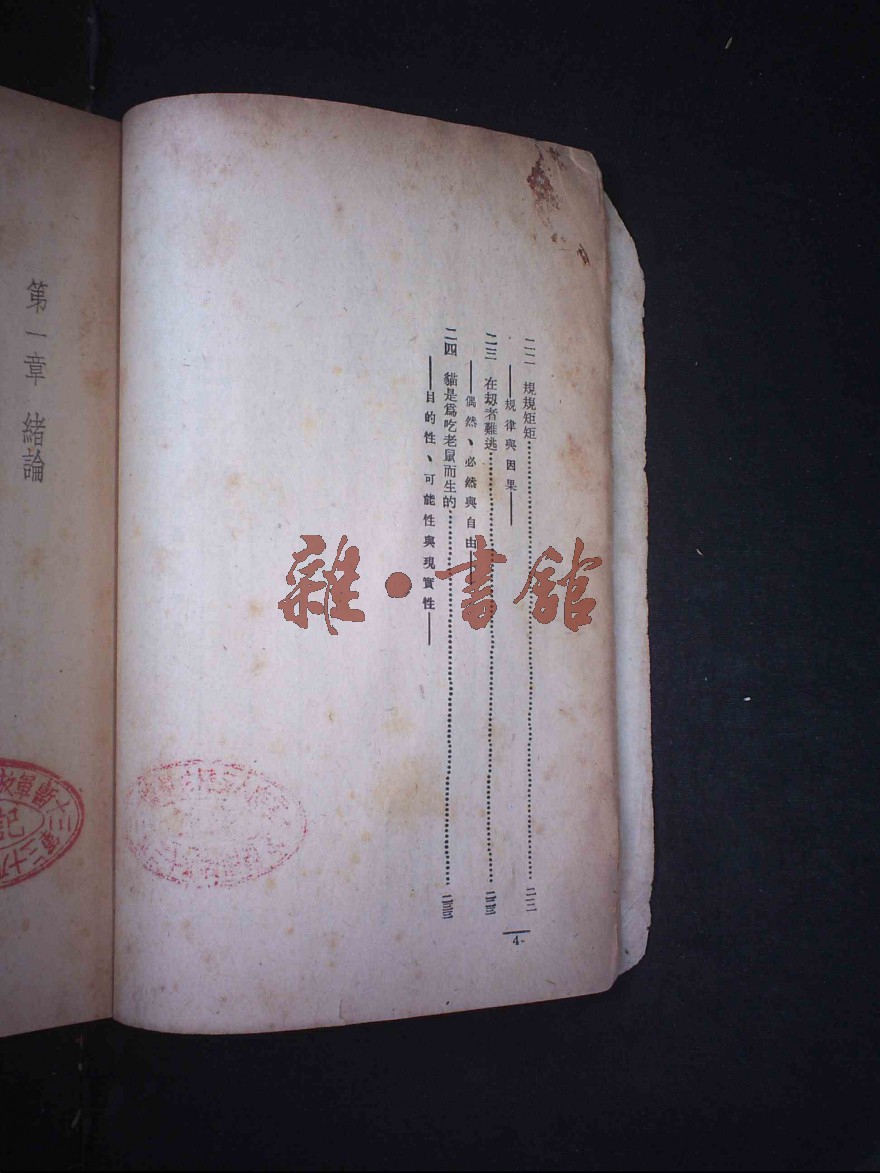 二二　規規矩矩
——規律與因果——
二三　在劫者難逃
——偶然、必然與自由——
二四　貓是爲吃老鼠而生的
——目的性、可能性與現實性——
4
第一章　緒論
雜·書館